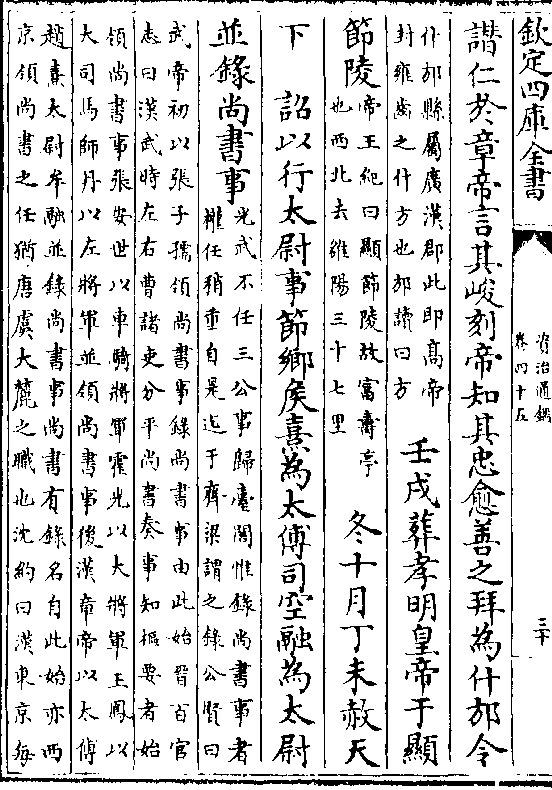 欽定四庫全書
資治通鑑
卷四十五
三十
譛仁於章帝言其峻刻帝知其忠愈善之拜為什邡令
什邡縣屬廣漢郡此即髙帝
封雍齒之什方也邡讀曰方
壬戌葬孝明皇帝于顯
節陵
帝王紀曰顯節陵故富壽亭
也西北去雒陽三十七里
冬十月丁未赦天
下 詔以行太尉事節鄉侯熹為太傅司空融為太尉
並錄尚書事
光武不任三公事歸臺閣惟錄尚書事者
權任稍重自是迄于齊梁謂之錄公賢曰
武帝初以張子孺領尚書事錄尚書事由此始晉百官
志曰漢武時左右曹諸吏分平尚書奏事知樞要者始
領尚書事張安世以車騎將軍霍光以大將軍王鳳以
大司馬師丹以左將軍並領尚書事後漢章帝以太傅
趙熹太尉牟融並錄尚書事尚書有錄名自此始亦西
京領尚書之任猶唐虞大麓之職也沈約曰漢東京每